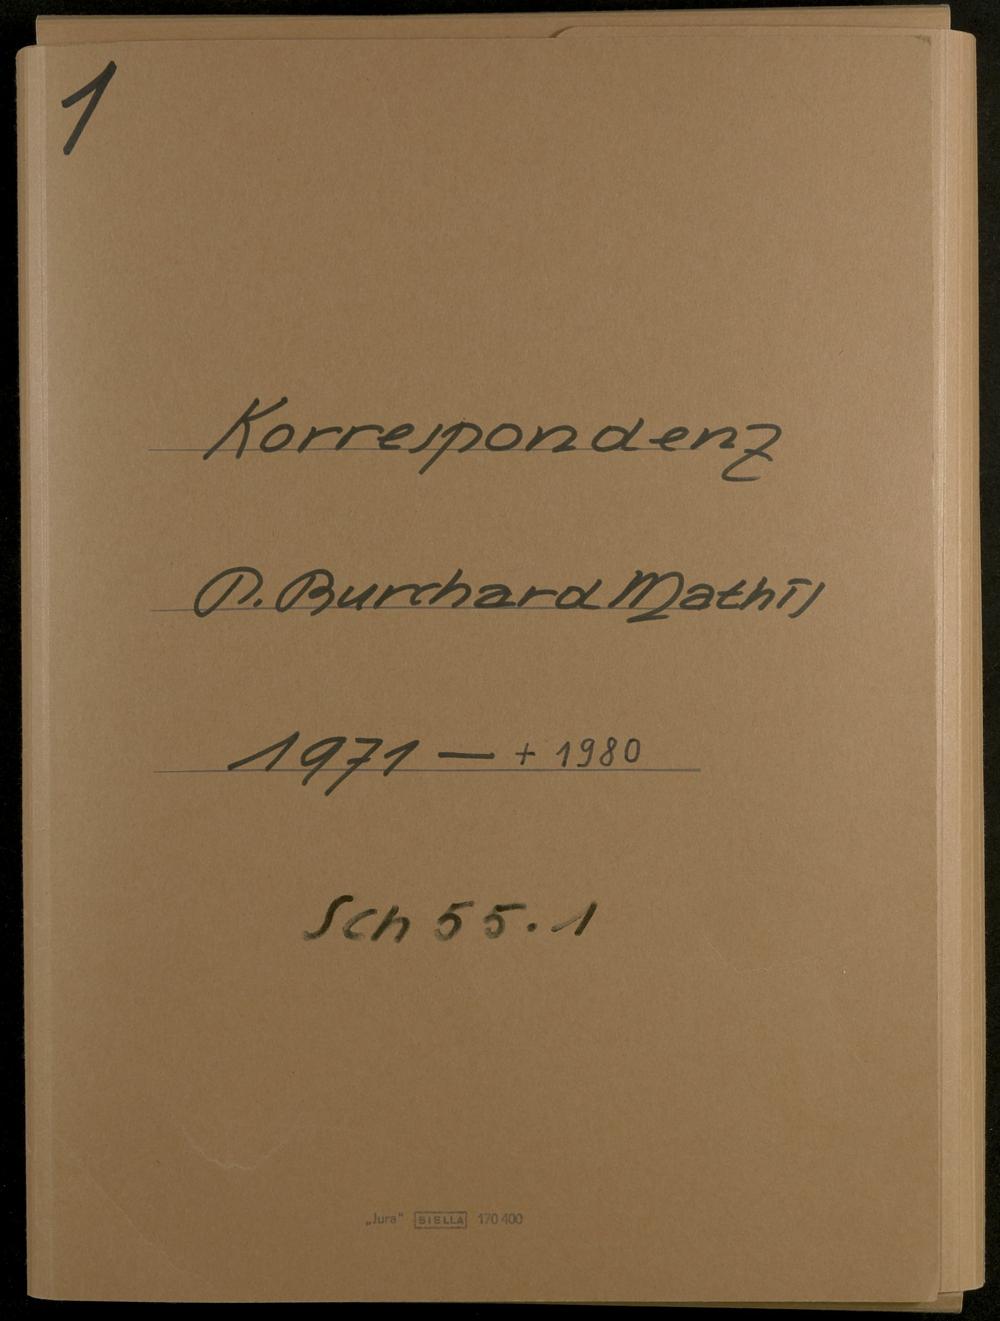 1
Korrespondenz
P. Burchard Mathis
1971 — + 1980
Sch 55.1
„Jura“ BIELLA 170 400